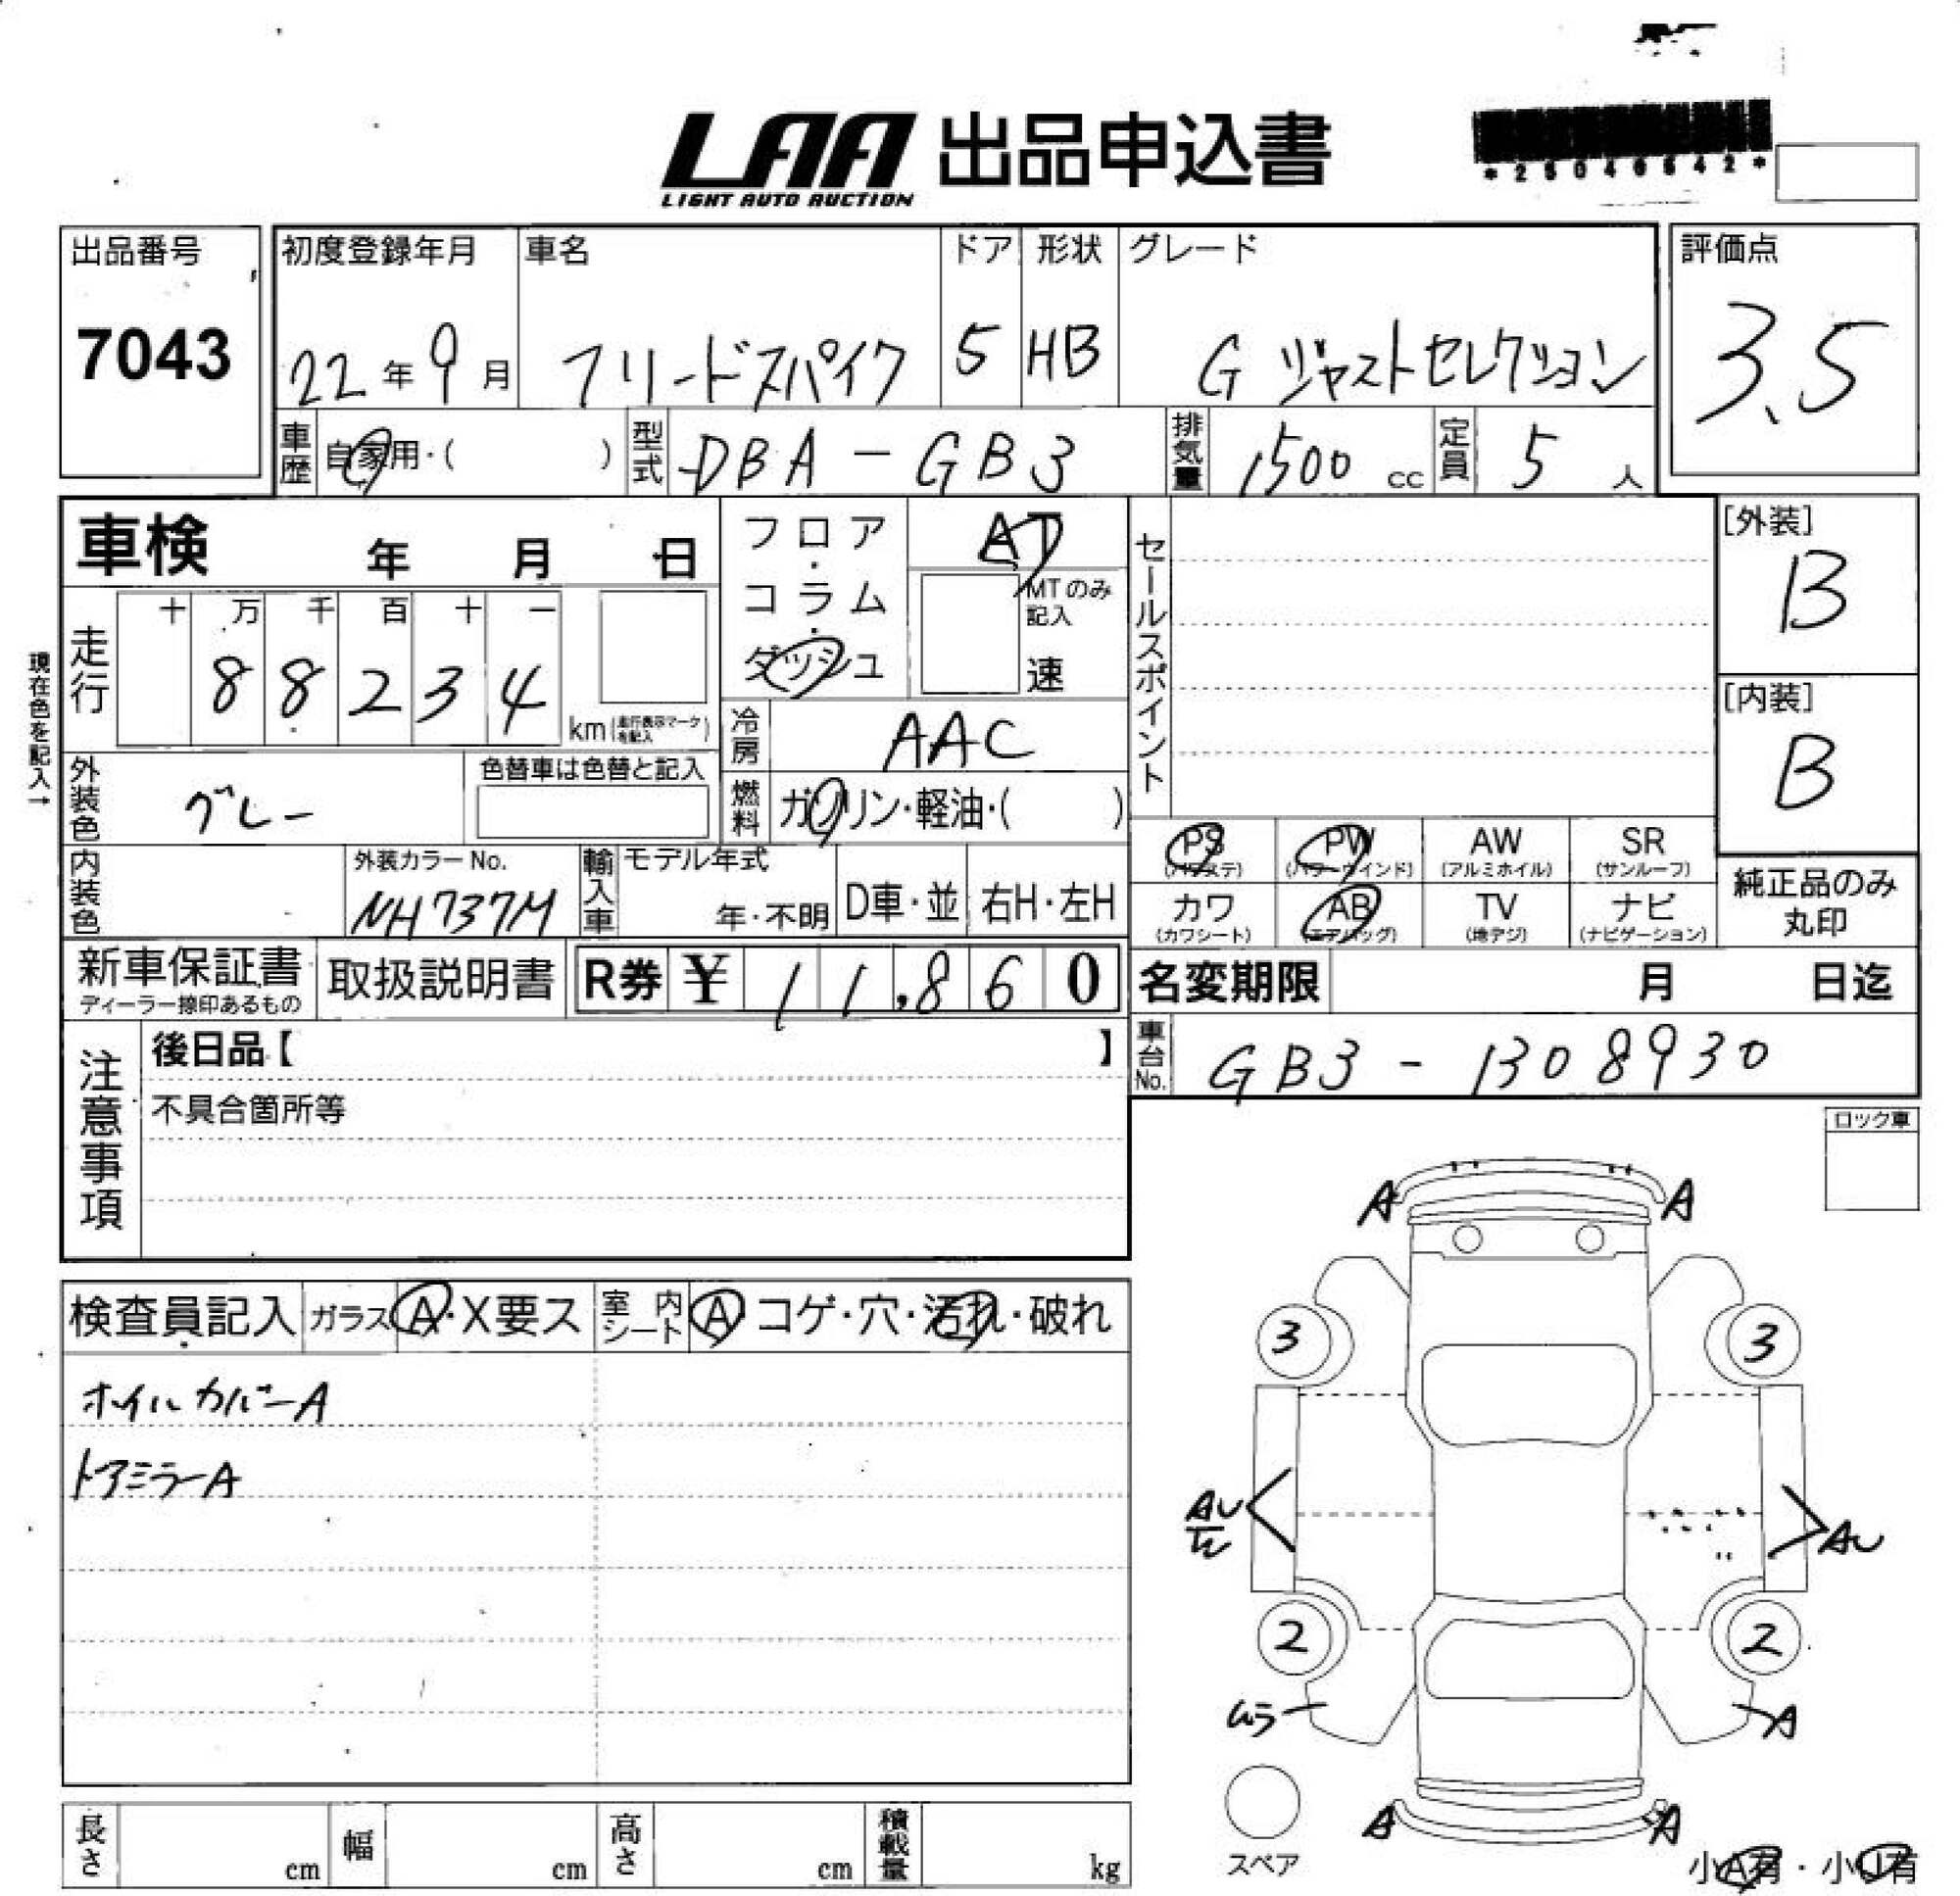 LAA 出品申込書
LIGHT AUTO AUCTION
*25040542*
出品番号
7043
初度登録年月
22年9月
車名
フリードスパイク
ドア
5
形状
HB
グレード
G ジャストセレクション
評価点
3.5
車歴 自家用・( )
型式 DBA-GB3
排気量 1500cc
定員 5人
車検 年 月 日
フロア・コラム・ダッシュ
AT
MTのみ記入
速
セールスポイント
[外装]
B
[内装]
B
現在色を記入→
走行
十 万 千 百 十 一
88234
km(走行表示マークを記入)
冷房 AAC
外装色 グレー
色替車は色替と記入
燃料 ガソリン・軽油・( )
内装色
外装カラーNo.
NH737M
輸入車
モデル年式
年・不明
D車・並
右H・左H
PS (パワステ)
PW (パワーウインド)
AW (アルミホイル)
SR (サンルーフ)
カワ (カワシート)
AB (エアバッグ)
TV (地デジ)
ナビ (ナビゲーション)
純正品のみ
丸印
新車保証書
ディーラー捺印あるもの
取扱説明書
R券 ¥ 11,860
名変期限 月 日迄
車台No. GB3-1308930
注意事項
後日品【 】
不具合箇所等
ロック車
検査員記入
ガラス A・X要ス
室内シート A コゲ・穴・汚れ・破れ
ホイルカバーA
ドアミラーA
A A
3 3
AU AU
2 2
ムラ A
A A
スペア
小A有・小U有
長さ cm
幅 cm
高さ cm
積載量 kg